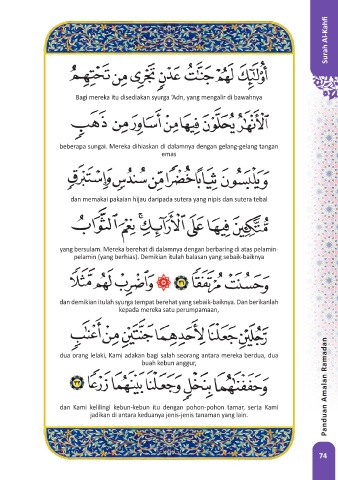 Surah Al-Kahfi
أُو۟لَـٰٓئِكَ لَهُمْ جَنَّـٰتُ عَدْنٍ تَجْرِى مِن تَحْتِهِمُ
Bagi mereka itu disediakan syurga 'Adn, yang mengalir di bawahnya
ٱلْأَنْهَـٰرُ يُحَلَّوْنَ فِيهَا مِنْ أَسَاوِرَ مِن ذَهَبٍ
beberapa sungai. Mereka dihiaskan di dalamnya dengan gelang-gelang tangan
emas
وَيَلْبَسُونَ ثِيَابًا خُضْرًا مِّن سُندُسٍ وَإِسْتَبْرَقٍ
dan memakai pakaian hijau daripada sutera yang nipis dan sutera tebal
مُّتَّكِـِٔينَ فِيهَا عَلَى ٱلْأَرَآئِكِ ۚ نِعْمَ ٱلثَّوَابُ
yang bersulam. Mereka berehat di dalamnya dengan berbaring di atas pelamin-
pelamin (yang berhias). Demikian itulah balasan yang sebaik-baiknya
وَحَسُنَتْ مُرْتَفَقًا ٣١ وَٱضْرِبْ لَهُم مَّثَلًا
dan demikian itulah syurga tempat berehat yang sebaik-baiknya. Dan berikanlah
kepada mereka satu perumpamaan,
رَّجُلَيْنِ جَعَلْنَا لِأَحَدِهِمَا جَنَّتَيْنِ مِنْ أَعْنَـٰبٍ
dua orang lelaki, Kami adakan bagi salah seorang antara mereka berdua, dua
buah kebun anggur,
وَحَفَفْنَـٰهُمَا بِنَخْلٍ وَجَعَلْنَا بَيْنَهُمَا زَرْعًا ٣٢
dan Kami kelilingi kebun-kebun itu dengan pohon-pohon tamar, serta Kami
jadikan di antara keduanya jenis-jenis tanaman yang lain.
Panduan Amalan Ramadan
74